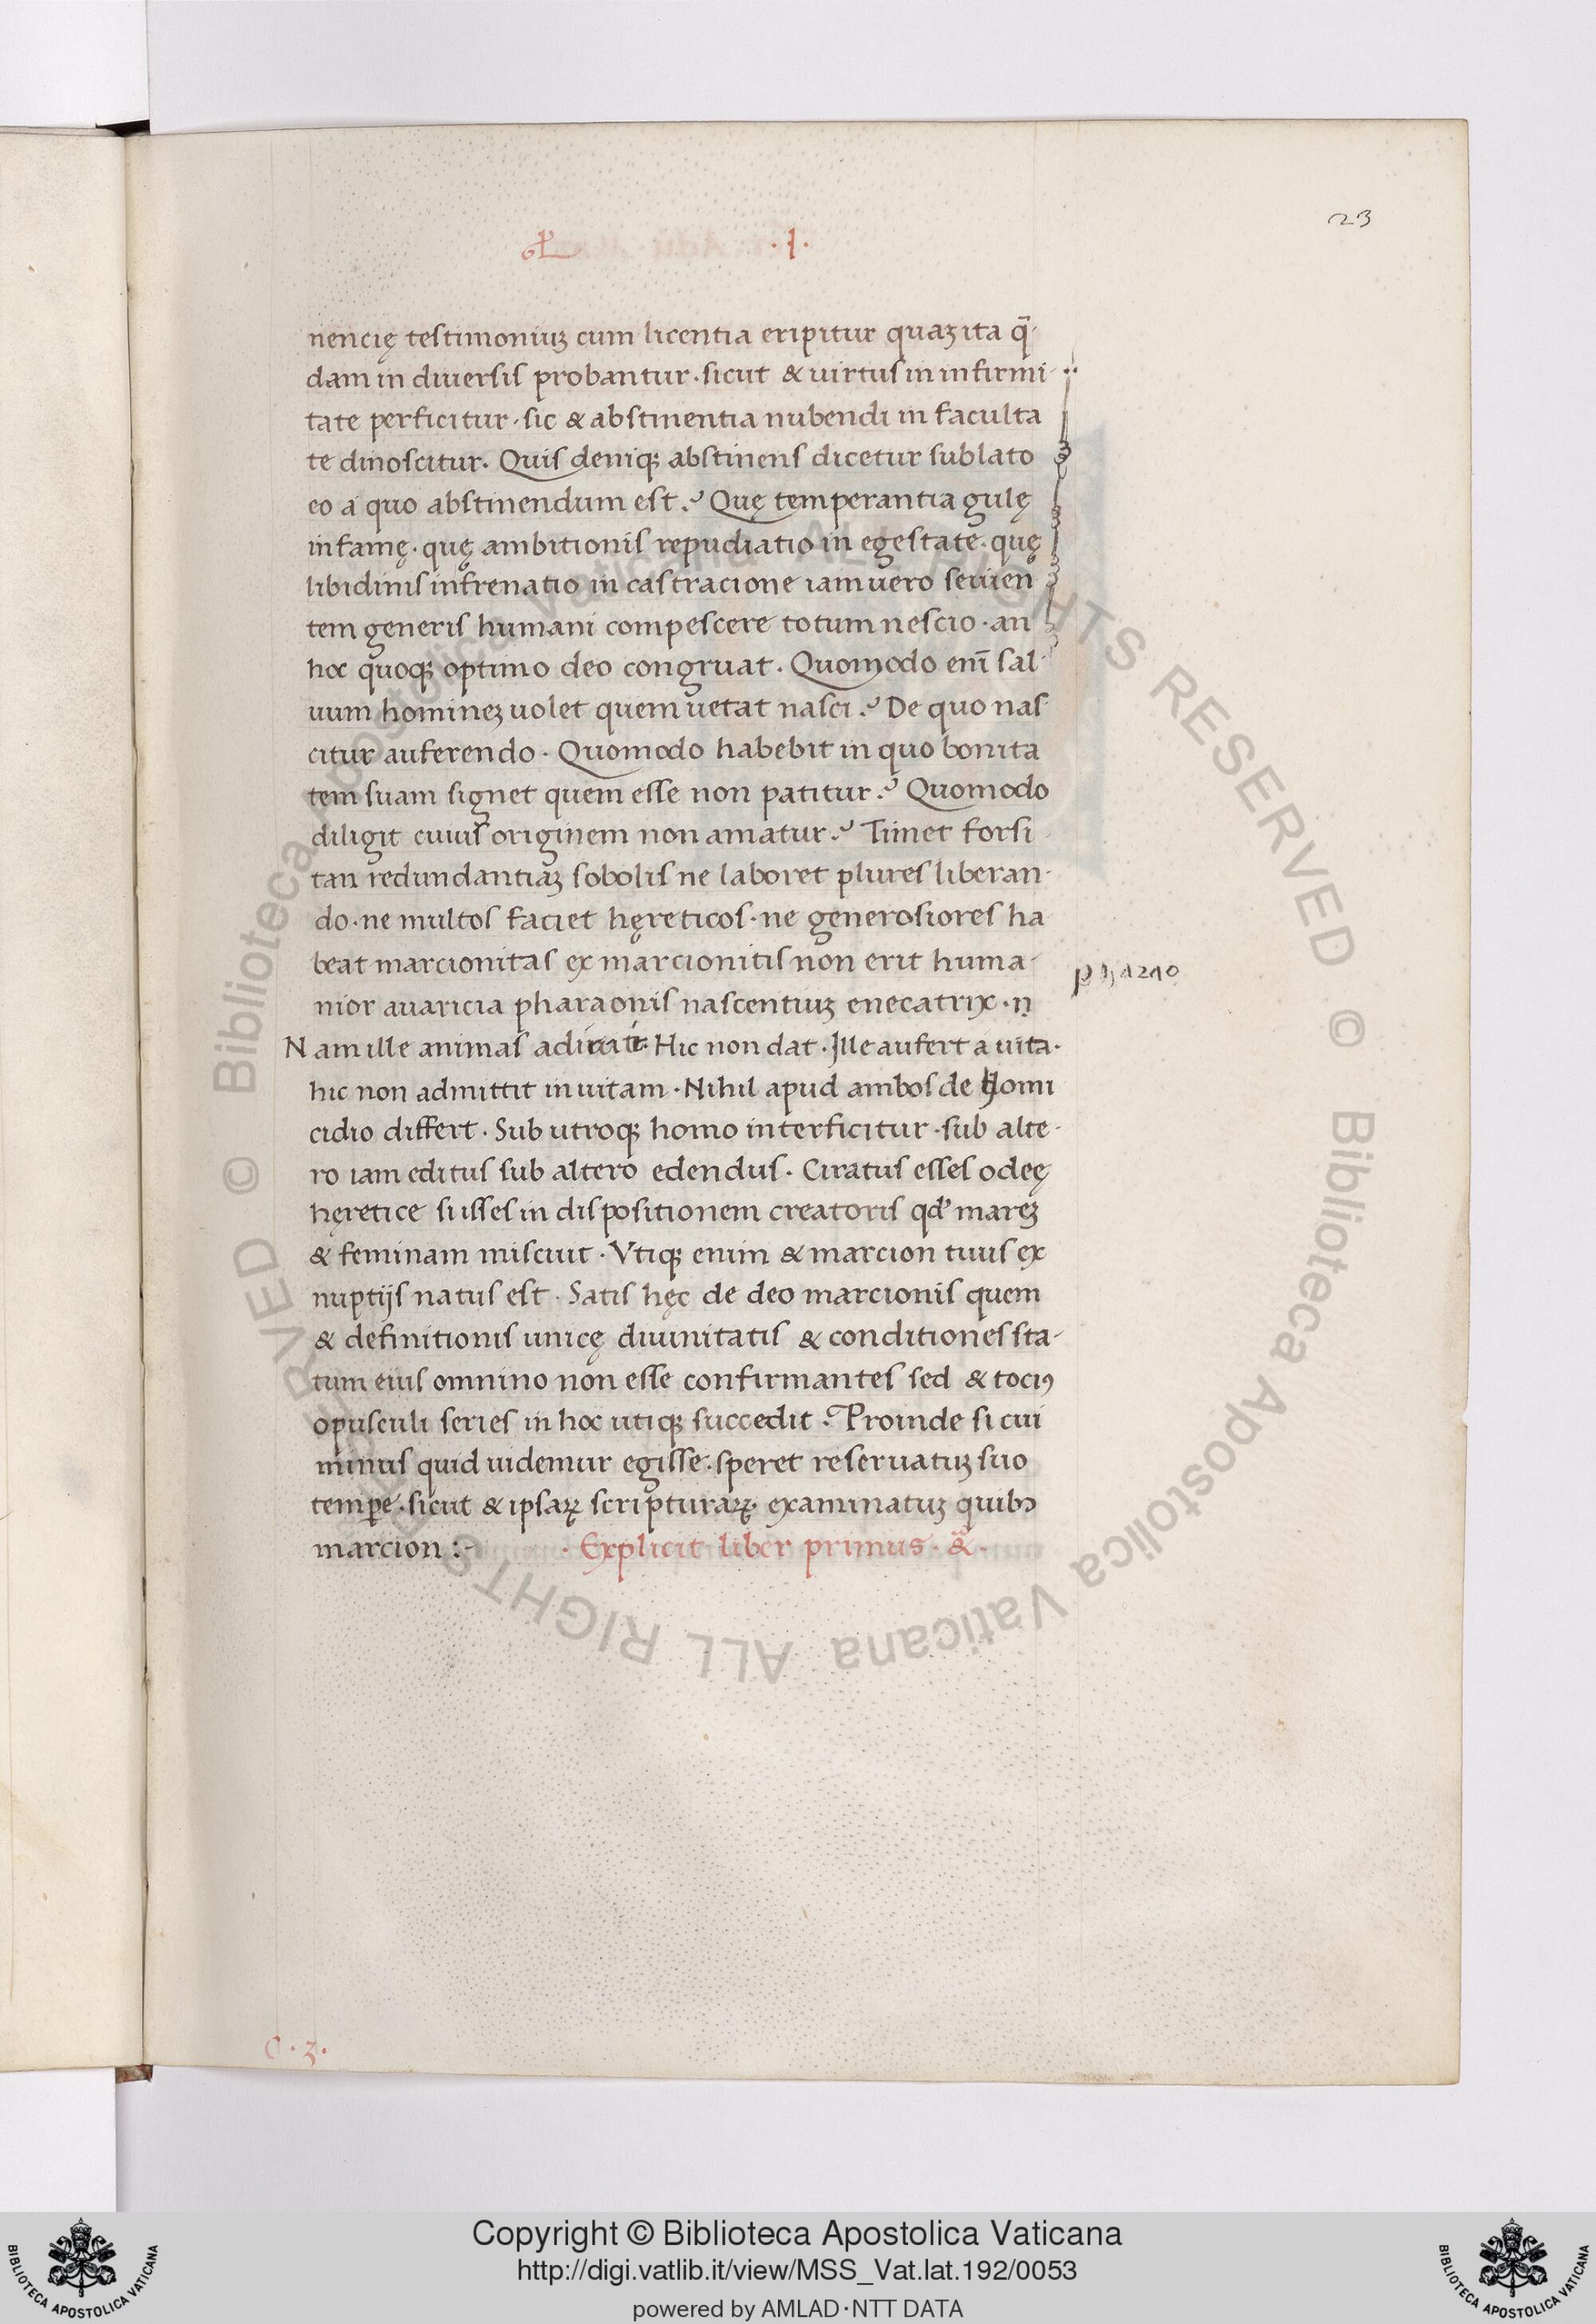 23
· I ·
nencię testimoniuꝫ cum licentia eripitur quaꝫ ita q̄-
dam in diuersis probantur · sicut & uirtus in infirmi-
tate perficitur · sic & abstinentia nubendi in faculta
te dinoscitur. Quis deniqꝫ abstinens dicetur sublato
eo a quo abstinendum est .? Quę temperantia gulę
in famę · quę ambitionis repudiatio in egestate · quę
libidinis infrenatio in castracione iam uero seuien
tem generis humani compescere totum nescio · an
hoc quoqꝫ optimo deo congruat . Quomodo enī sal-
uum homineꝫ uolet quem uetat nasci .? De quo nas
citur auferendo · Quomodo habebit in quo bonita
tem suam signet quem esse non patitur .? Quomodo
diligit cuius originem non amatur .? Timet forsi
tan redundantiaꝫ sobolis ne laboret plures liberan-
do · ne multos faciet hęreticos · ne generosiores ha
beat marcionitas ex marcionitis non erit huma-
pharao
nior auaricia pharaonis nascentiuꝫ enecatrix · ṇ
Nam ille animas Hic non dat · Ille aufert a uita ·
hic non admittit in uitam · Nihil apud ambos de homi
cidio differt · Sub utroqꝫ homo interficitur · sub alte-
ro iam editus sub altero edendus · Ciratus esses odeę
hęretice si isses in dispositionem creatoris qd' mareꝫ
& feminam miscuit · Vtiqꝫ enim & marcion tuus ex
nuptijs natus est · Satis hęc de deo marcionis quem
& definitionis unicę diuinitatis & conditiones sta-
tum eius omnino non esse confirmantes sed & tociꝰ
opusculi series in hoc utiqꝫ succedit · Proinde si cui
minus quid uidemur egisse · speret reseruatuꝫ suo
temꝑe · sicut & ipsaꝝ scripturaꝝ · examinatuꝫ quibꝰ
marcion :-
· Explicit liber primus · &̄ ·
C · 3 ·
© Biblioteca Apostolica Vaticana ALL RIGHTS RESERVED © Biblioteca Apostolica Vaticana ALL RIGHTS RESERVED
Copyright © Biblioteca Apostolica Vaticana
http://digi.vatlib.it/view/MSS_Vat.lat.192/0053
powered by AMLAD·NTT DATA
BIBLIOTECA APOSTOLICA VATICANA
BIBLIOTECA APOSTOLICA VATICANA